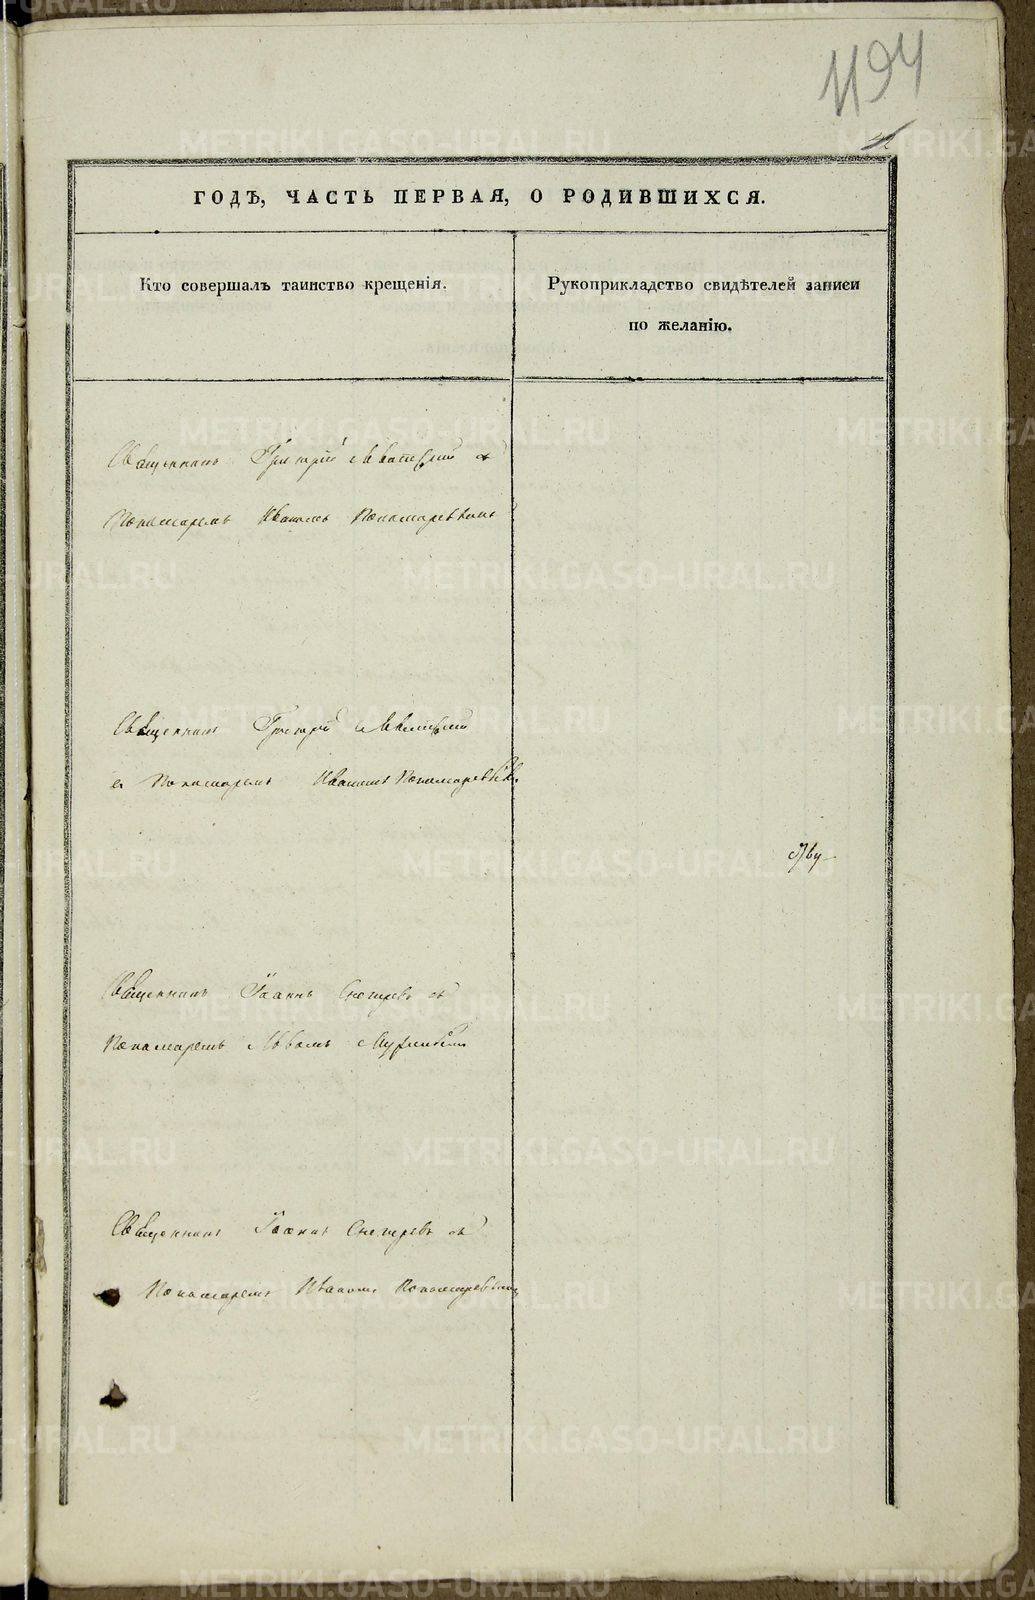 1194
ГОДЪ, ЧАСТЬ ПЕРВАЯ, О РОДИВШИХСЯ.
Кто совершалъ таинство крещенія.
Рукоприкладство свидѣтелей записи
по желанію.
Священникъ Григорій съ
Пономаремъ Иваномъ Пономаревымъ
Священникъ Григорій
съ Пономаремъ Иваномъ Пономаревымъ
Священникъ Іоаннъ Снегиревъ съ
Пономаремъ
Священникъ Іоаннъ Снегиревъ съ
Пономаремъ Иваномъ Пономаревымъ
METRIKI.GASO-URAL.RU